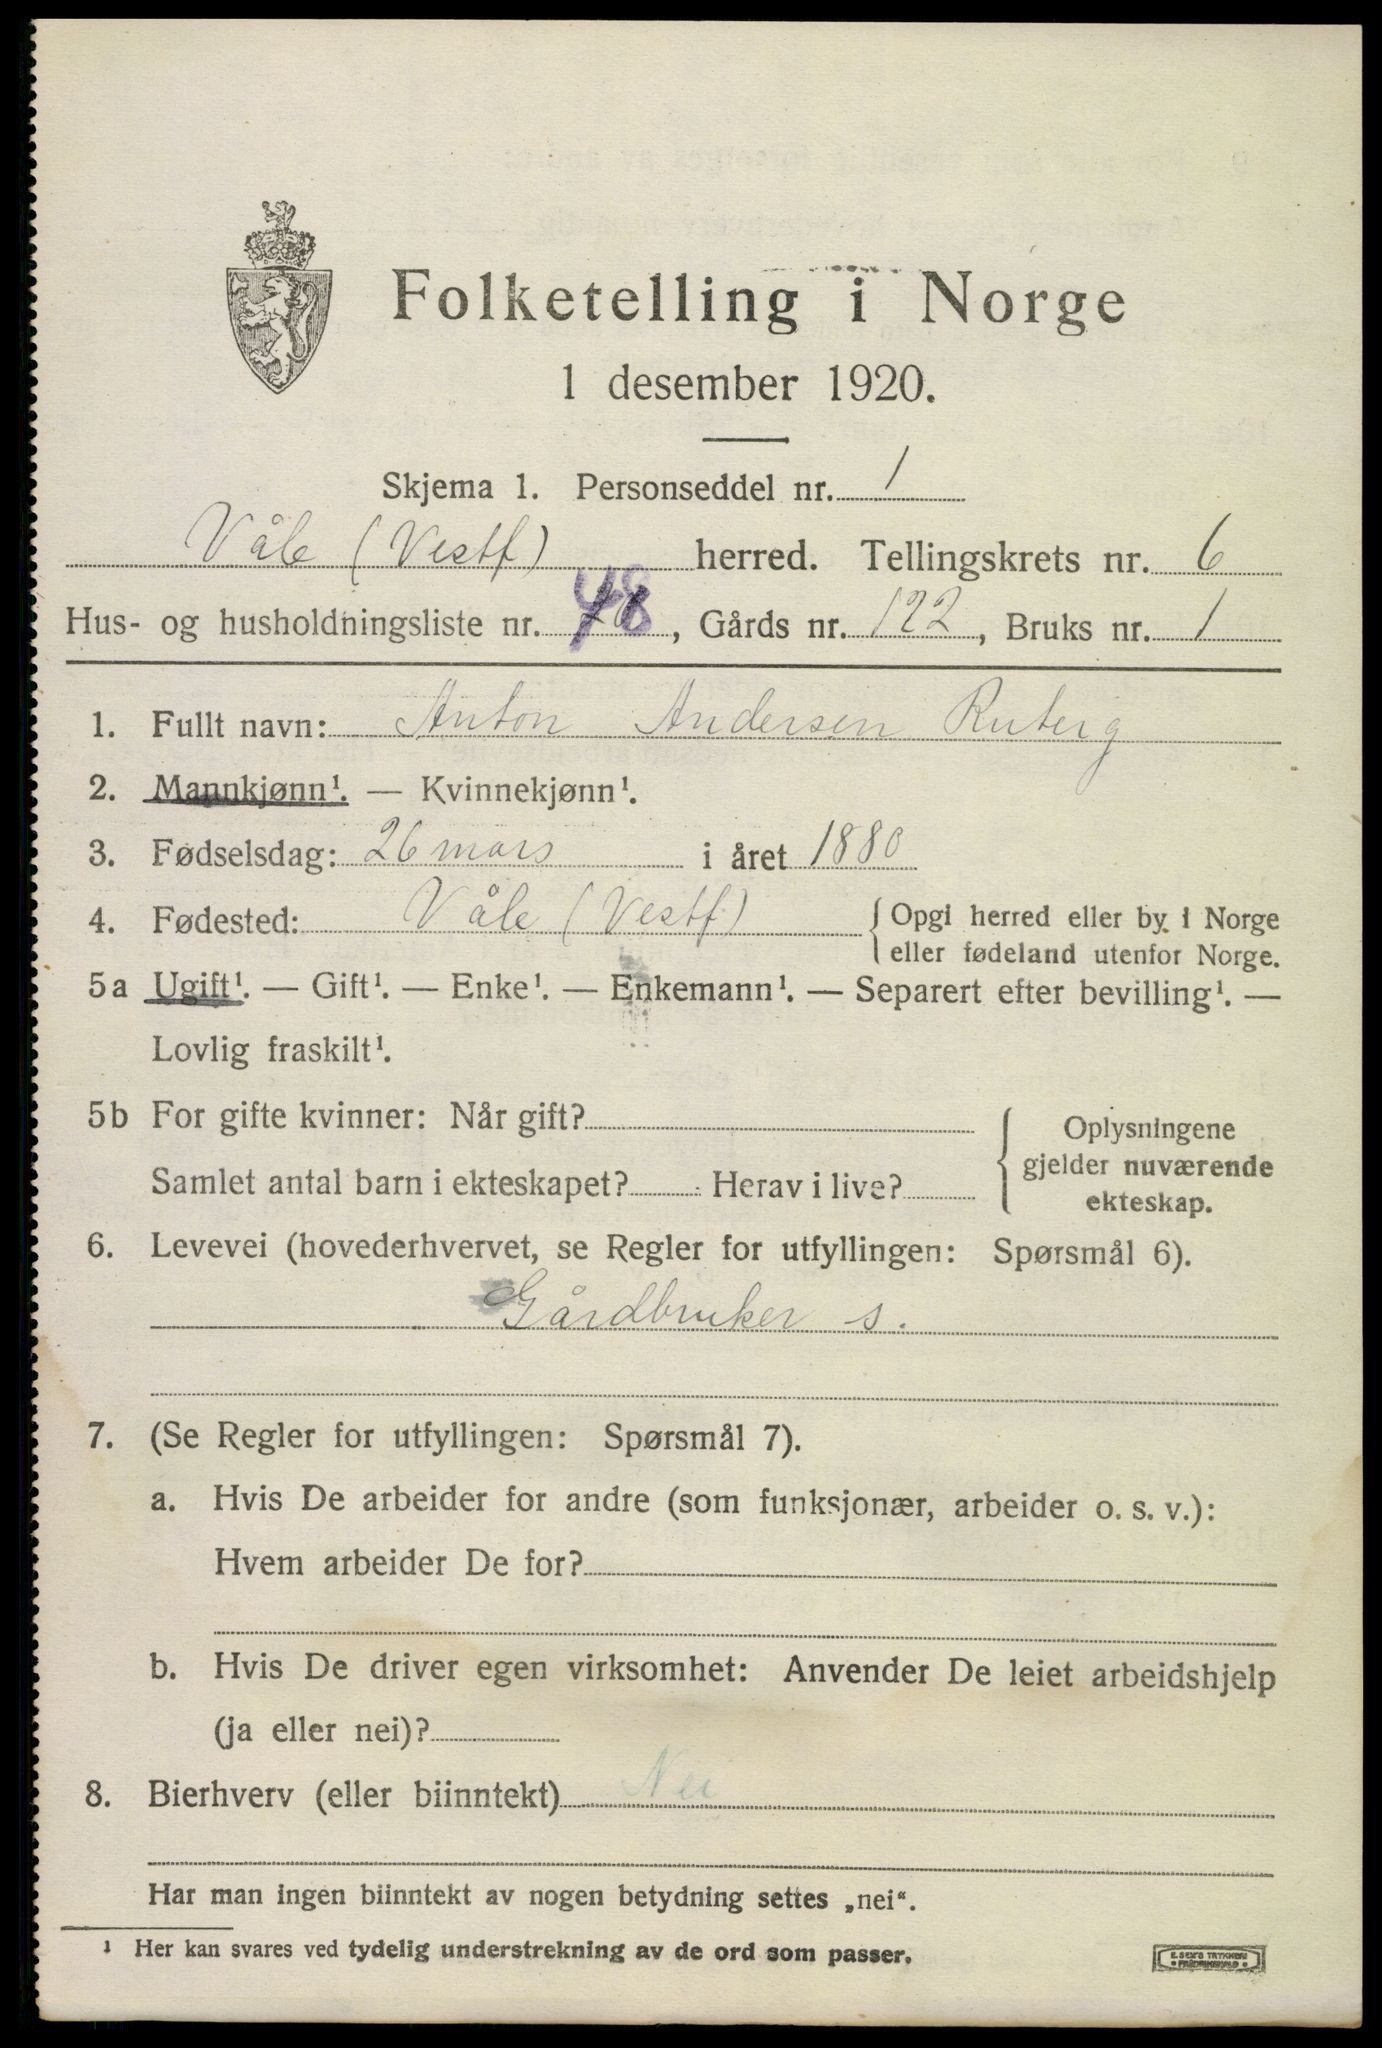 Folketelling i Norge
1 desember 1920.
Skjema 1. Personseddel nr. 1
Våle (Vestf) herred. Tellingskrets nr. 6
Hus- og husholdningsliste nr. 48, Gårds nr. 122, Bruks nr. 1
1. Fullt navn: Anton Andersen Ruberg
2. Mannkjønn¹. — Kvinnekjønn¹.
3. Fødselsdag: 26 mars i året 1880
4. Fødested: Våle (Vestf) { Opgi herred eller by i Norge
eller fødeland utenfor Norge.
5a Ugift¹. — Gift¹. — Enke¹. — Enkemann¹. — Separert efter bevilling¹. —
Lovlig fraskilt¹.
5b For gifte kvinner: Når gift?
Samlet antal barn i ekteskapet? Herav i live?
{ Oplysningene
gjelder nuværende
ekteskap.
6. Levevei (hovederhvervet, se Regler for utfyllingen: Spørsmål 6).
Gårdbruker s.
7. (Se Regler for utfyllingen: Spørsmål 7).
a. Hvis De arbeider for andre (som funksjonær, arbeider o. s. v.):
Hvem arbeider De for?
b. Hvis De driver egen virksomhet: Anvender De leiet arbeidshjelp
(ja eller nei)?
8. Bierhverv (eller biinntekt) Nei
Har man ingen biinntekt av nogen betydning settes „nei“.
¹ Her kan svares ved tydelig understrekning av de ord som passer.